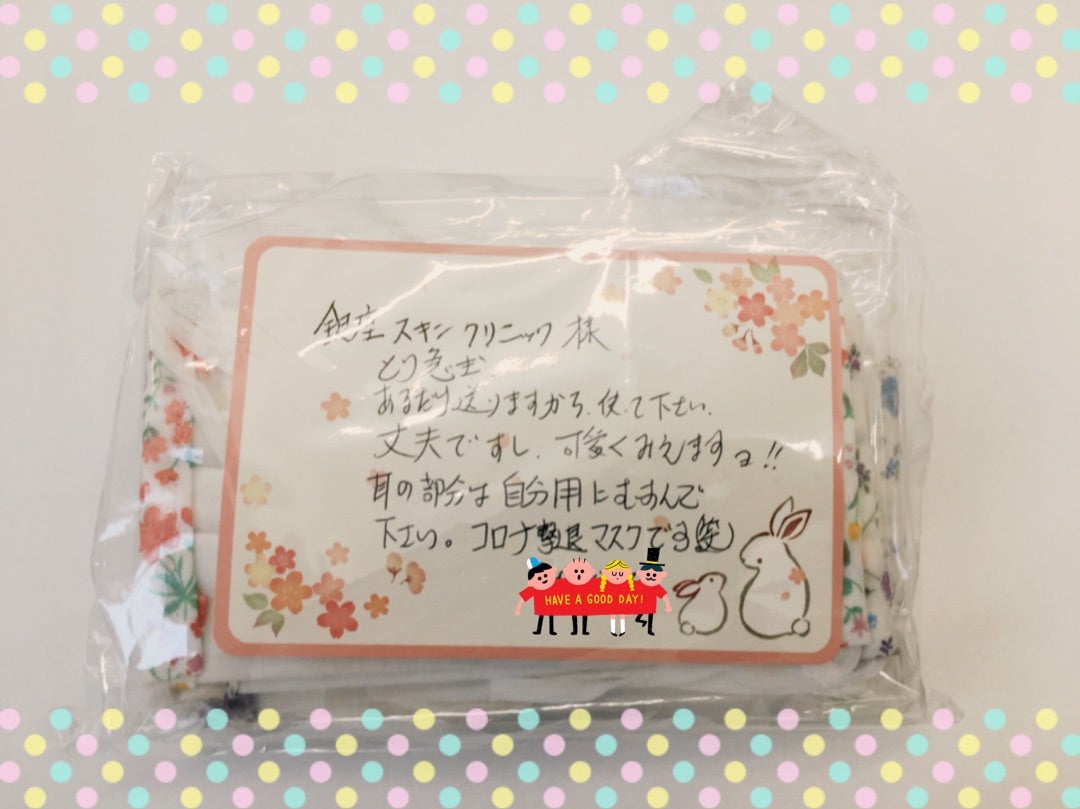 銀座スキンクリニック様
とり急ぎ
あるだけ送りますから、使て下さい、
丈夫ですし、可愛くみえますヨ!!
耳の部分は自分用にむすんで
下さい。コロナ撃退マスクです(笑)
HAVE A GOOD DAY!